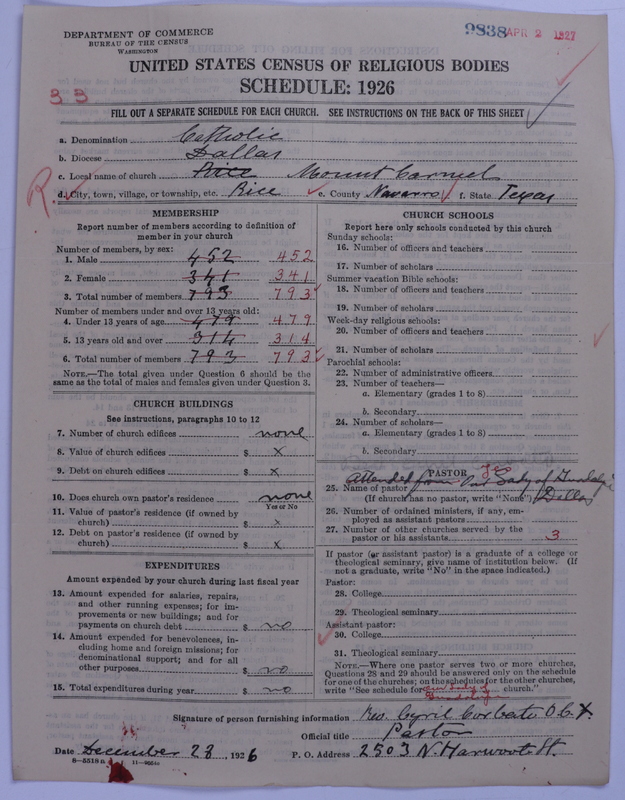 DEPARTMENT OF COMMERCE
BUREAU OF THE CENSUS
WASHINGTON
9838 APR 2 1927
UNITED STATES CENSUS OF RELIGIOUS BODIES
SCHEDULE: 1926
33
FILL OUT A SEPARATE SCHEDULE FOR EACH CHURCH. SEE INSTRUCTIONS ON THE BACK OF THIS SHEET
a. Denomination Catholic
b. Diocese Dallas
c. Local name of church Rice Mount Carmel
R
d. City, town, village, or township, etc. Rice e. County Navarro f. State Texas
MEMBERSHIP
Report number of members according to definition of
member in your church
Number of members, by sex:
1. Male 452 452
2. Female 341 341
3. Total number of members 793 793
Number of members under and over 13 years old:
4. Under 13 years of age 479 479
5. 13 years old and over 314 314
6. Total number of members 793 793
NOTE.—The total given under Question 6 should be the
same as the total of males and females given under Question 3.
CHURCH BUILDINGS
See instructions, paragraphs 10 to 12
7. Number of church edifices none
8. Value of church edifices $ x
9. Debt on church edifices $ x
10. Does church own pastor's residence none
Yes or No
11. Value of pastor's residence (if owned by
church) $ x
12. Debt on pastor's residence (if owned by
church) $ x
EXPENDITURES
Amount expended by your church during last fiscal year
13. Amount expended for salaries, repairs,
and other running expenses; for im-
provements or new buildings; and for
payments on church debt $ no
14. Amount expended for benevolences, in-
cluding home and foreign missions; for
denominational support; and for all
other purposes $ no
15. Total expenditures during year $ no
CHURCH SCHOOLS
Report here only schools conducted by this church
Sunday schools:
16. Number of officers and teachers
17. Number of scholars
Summer vacation Bible schools:
18. Number of officers and teachers
19. Number of scholars
Week-day religious schools:
20. Number of officers and teachers
21. Number of scholars
Parochial schools:
22. Number of administrative officers
23. Number of teachers—
a. Elementary (grades 1 to 8)
b. Secondary
24. Number of scholars—
a. Elementary (grades 1 to 8)
b. Secondary
PASTOR Yes
attended from Our Lady of
25. Name of pastor
(If church has no pastor, write "None") Dallas
26. Number of ordained ministers, if any, em-
ployed as assistant pastors
27. Number of other churches served by the
pastor or his assistants 3
If pastor (or assistant pastor) is a graduate of a college or
theological seminary, give name of institution below. (If
not a graduate, write "No" in the space indicated.)
Pastor:
28. College
29. Theological seminary
Assistant pastor:
30. College
31. Theological seminary
NOTE.—Where one pastor serves two or more churches,
Questions 28 and 29 should be answered only on the schedule
for one of the churches; on the schedules for the other churches,
write "See schedule for Our Lady of church."
Signature of person furnishing information Rev. Cyril Corbato
Official title Pastor
Date December 28, 1926 P. O. Address 2503 N. Harwood St.
8—5518 a 11—9664a